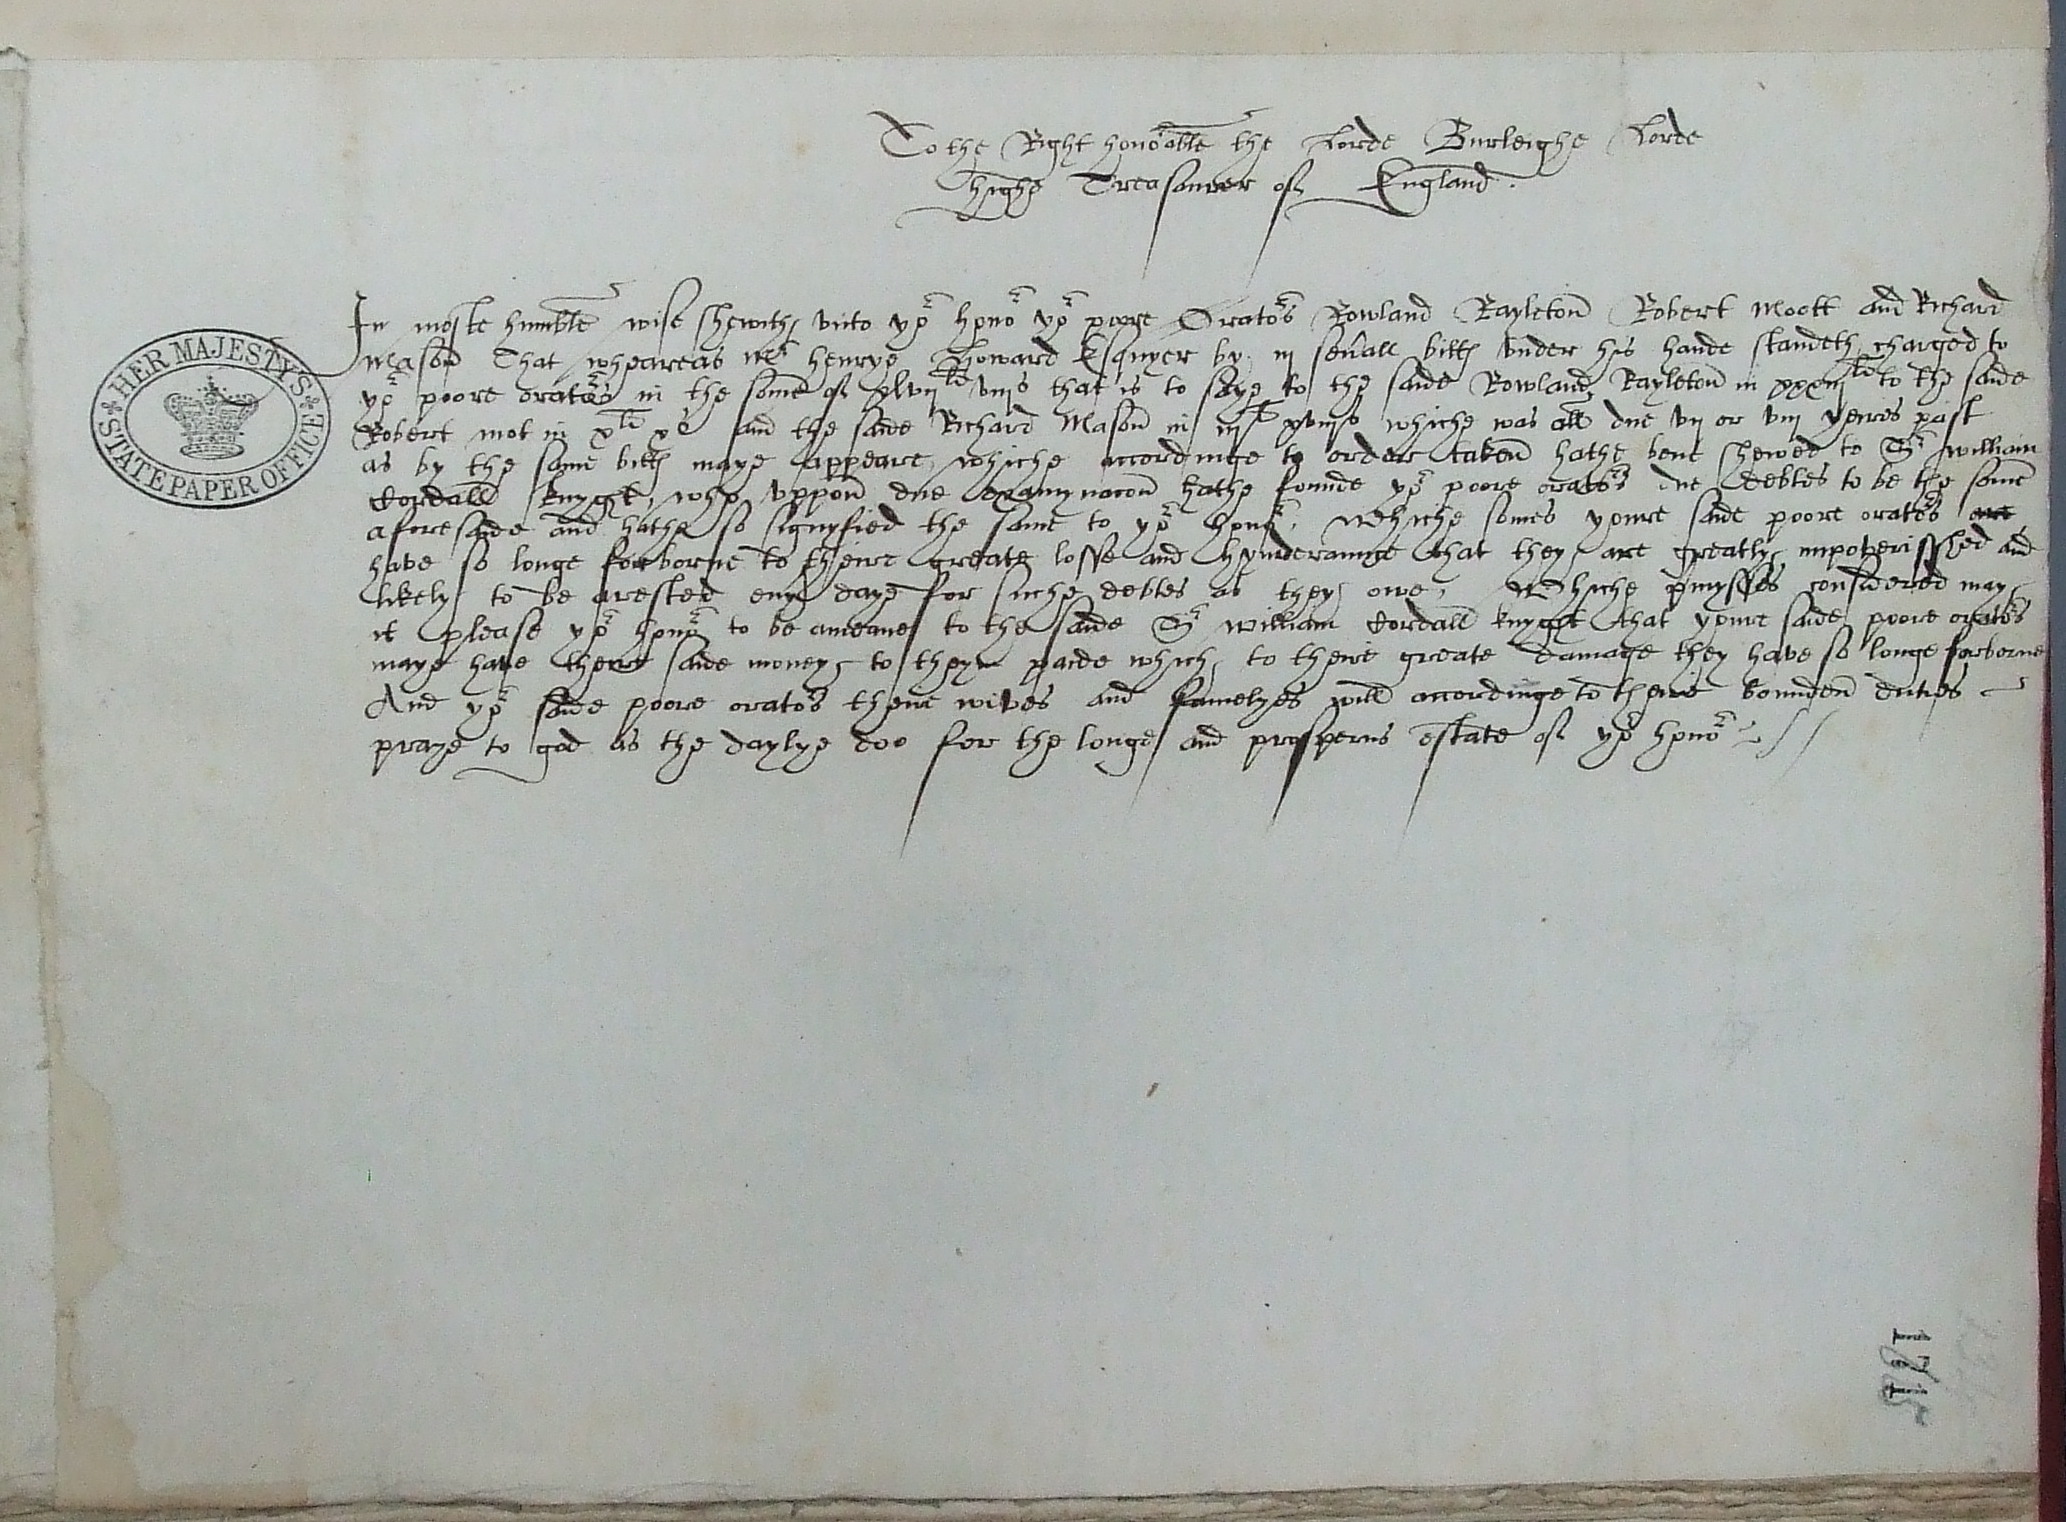 To the Right hono:able the Lorde Burleighe Lorde
highe Treasourer of England.
In moste humble wise shewith vnto yor honor yor poore Orators Rowland Rayleton Robert Mott and Richard
Mason That wheareas Mr henrye Howard Esquyer by iij seuall bills vnder his hande standeth charged to
yor poore orators in the some of xlvijli viijs that is to saye to the saide Rowland Rayleton in xxxiijli to the saide
Robert mot in xli xs and the saide Richard Mason in iijli xviijs whiche was all due vij or viij yeires past
as by the same bills maye appeare, whiche accordinge to order taken hathe bene shewed to Sr william
Cordall knyght, who vppon due examynacon hathe founde yor poore orators due debtes to be the some
aforesaide and hathe so signyfied the same to yor honor. Whiche somes youre saide poore orators are
have so longe forborne to theire greate losse and hynderaunce that they are greatly impoverisshed and
likely to be arested eny daye for suche debtes as they owe, Whiche pmysses considered may
it please yor honor to be ameane to the saide Sr william Cordall knyght that youre saide poore orators
maye have there saide money to theym paide which to theire greate damage they have so longe forborne
And yor saide poore orators theire wives and famelyes will accordinge to theire bounden duties
praye to god as the daylye doo for the longe and prosperus estate of yor honor
HER MAJESTY'S
STATE PAPER OFFICE
171